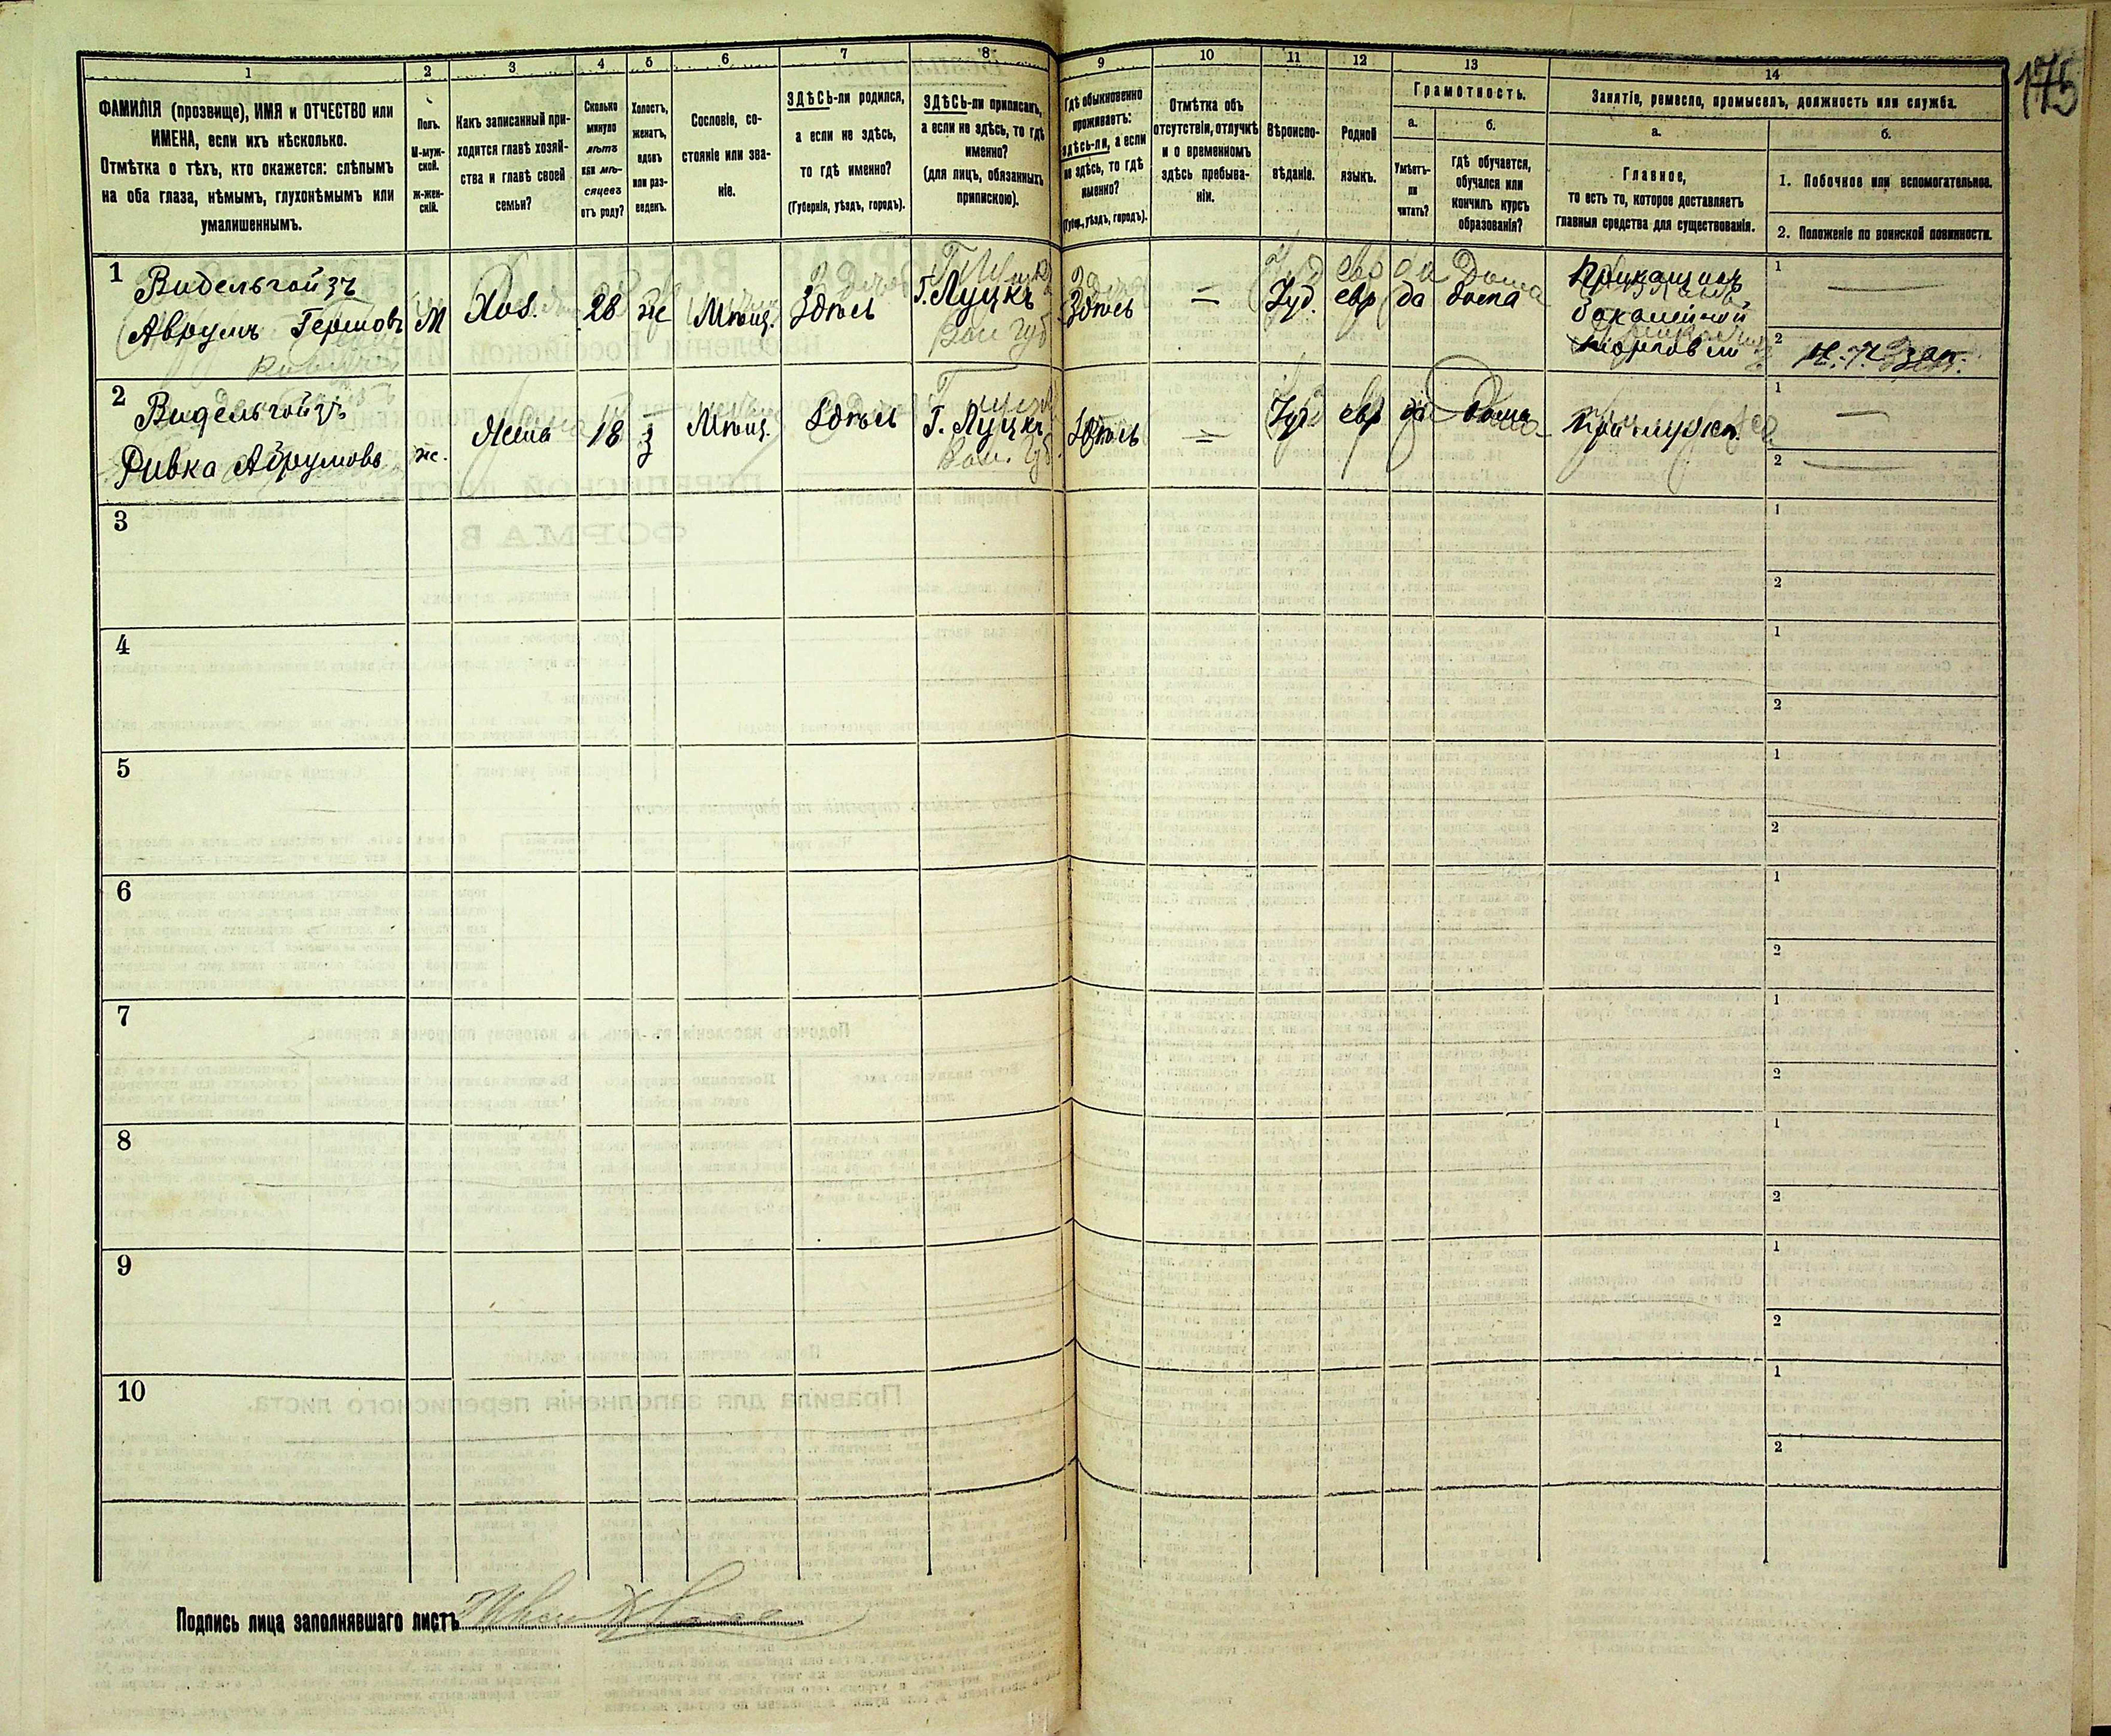 175
1 2 3 4 5 6 7 8 9 10 11 12 13 14
ФАМИЛІЯ (прозвище), ИМЯ и ОТЧЕСТВО или
ИМЕНА, если ихъ нѣсколько.
Отмѣтка о тѣхъ, кто окажется: слѣпымъ
на оба глаза, нѣмымъ, глухонѣмымъ или
умалишеннымъ.
Полъ.
М-муж-
ской.
Ж-жен-
скій.
Какъ записанный при-
ходится главѣ хозяй-
ства и главѣ своей
семьи?
Сколько
минуло
лѣтъ
или мѣ-
сяцевъ
отъ роду?
Холостъ,
женатъ,
вдовъ
или раз-
веденъ.
Сословіе, со-
стояніе или зва-
ніе.
ЗДѢСЬ-ли родился,
а если не здѣсь,
то гдѣ именно?
(Губернія, уѣздъ, городъ).
ЗДѢСЬ-ли приписанъ,
а если не здѣсь, то гдѣ
именно?
(для лицъ, обязанныхъ
припискою).
Гдѣ обыкновенно
проживаетъ:
здѣсь-ли, а если
не здѣсь, то гдѣ
именно?
(Губер., уѣздъ, городъ).
Отмѣтка объ
отсутствіи, отлучкѣ
и о временномъ
здѣсь пребыва-
ніи.
Вѣроиспо-
вѣданіе.
Родной
языкъ.
Грамотность.
а.
Умѣетъ-
ли
читать?
б.
гдѣ обучается,
обучался или
кончилъ курсъ
образованія?
Занятіе, ремесло, промыселъ, должность или служба.
а.
Главное,
то есть то, которое доставляетъ
главныя средства для существованія.
б.
1. Побочное или вспомогательное.
2. Положеніе по воинской повинности.
1
Видельгойзъ
Аврумъ Гершовъ
М
Хоз.
28
же
Мѣщ.
Здѣсь
Г. Луцкъ
Вол. губ
Здѣсь
=
Іуд.
евр
да
дома
Приказчикъ
бакалейной
торговли
1 —
2 Н. Ч. зап.
2
Видельгойзъ
Ривка Аврумовъ
же.
Жена
18
з
Мѣщ.
Здѣсь
Г. Луцкъ
Вол. губ
Здѣсь
=
Іуд
евр
да
дома
При мужѣ
1 —
2 —
3
1
2
4
1
2
5
1
2
6
1
2
7
1
2
8
1
2
9
1
2
10
1
2
Подпись лица заполнявшаго листъ